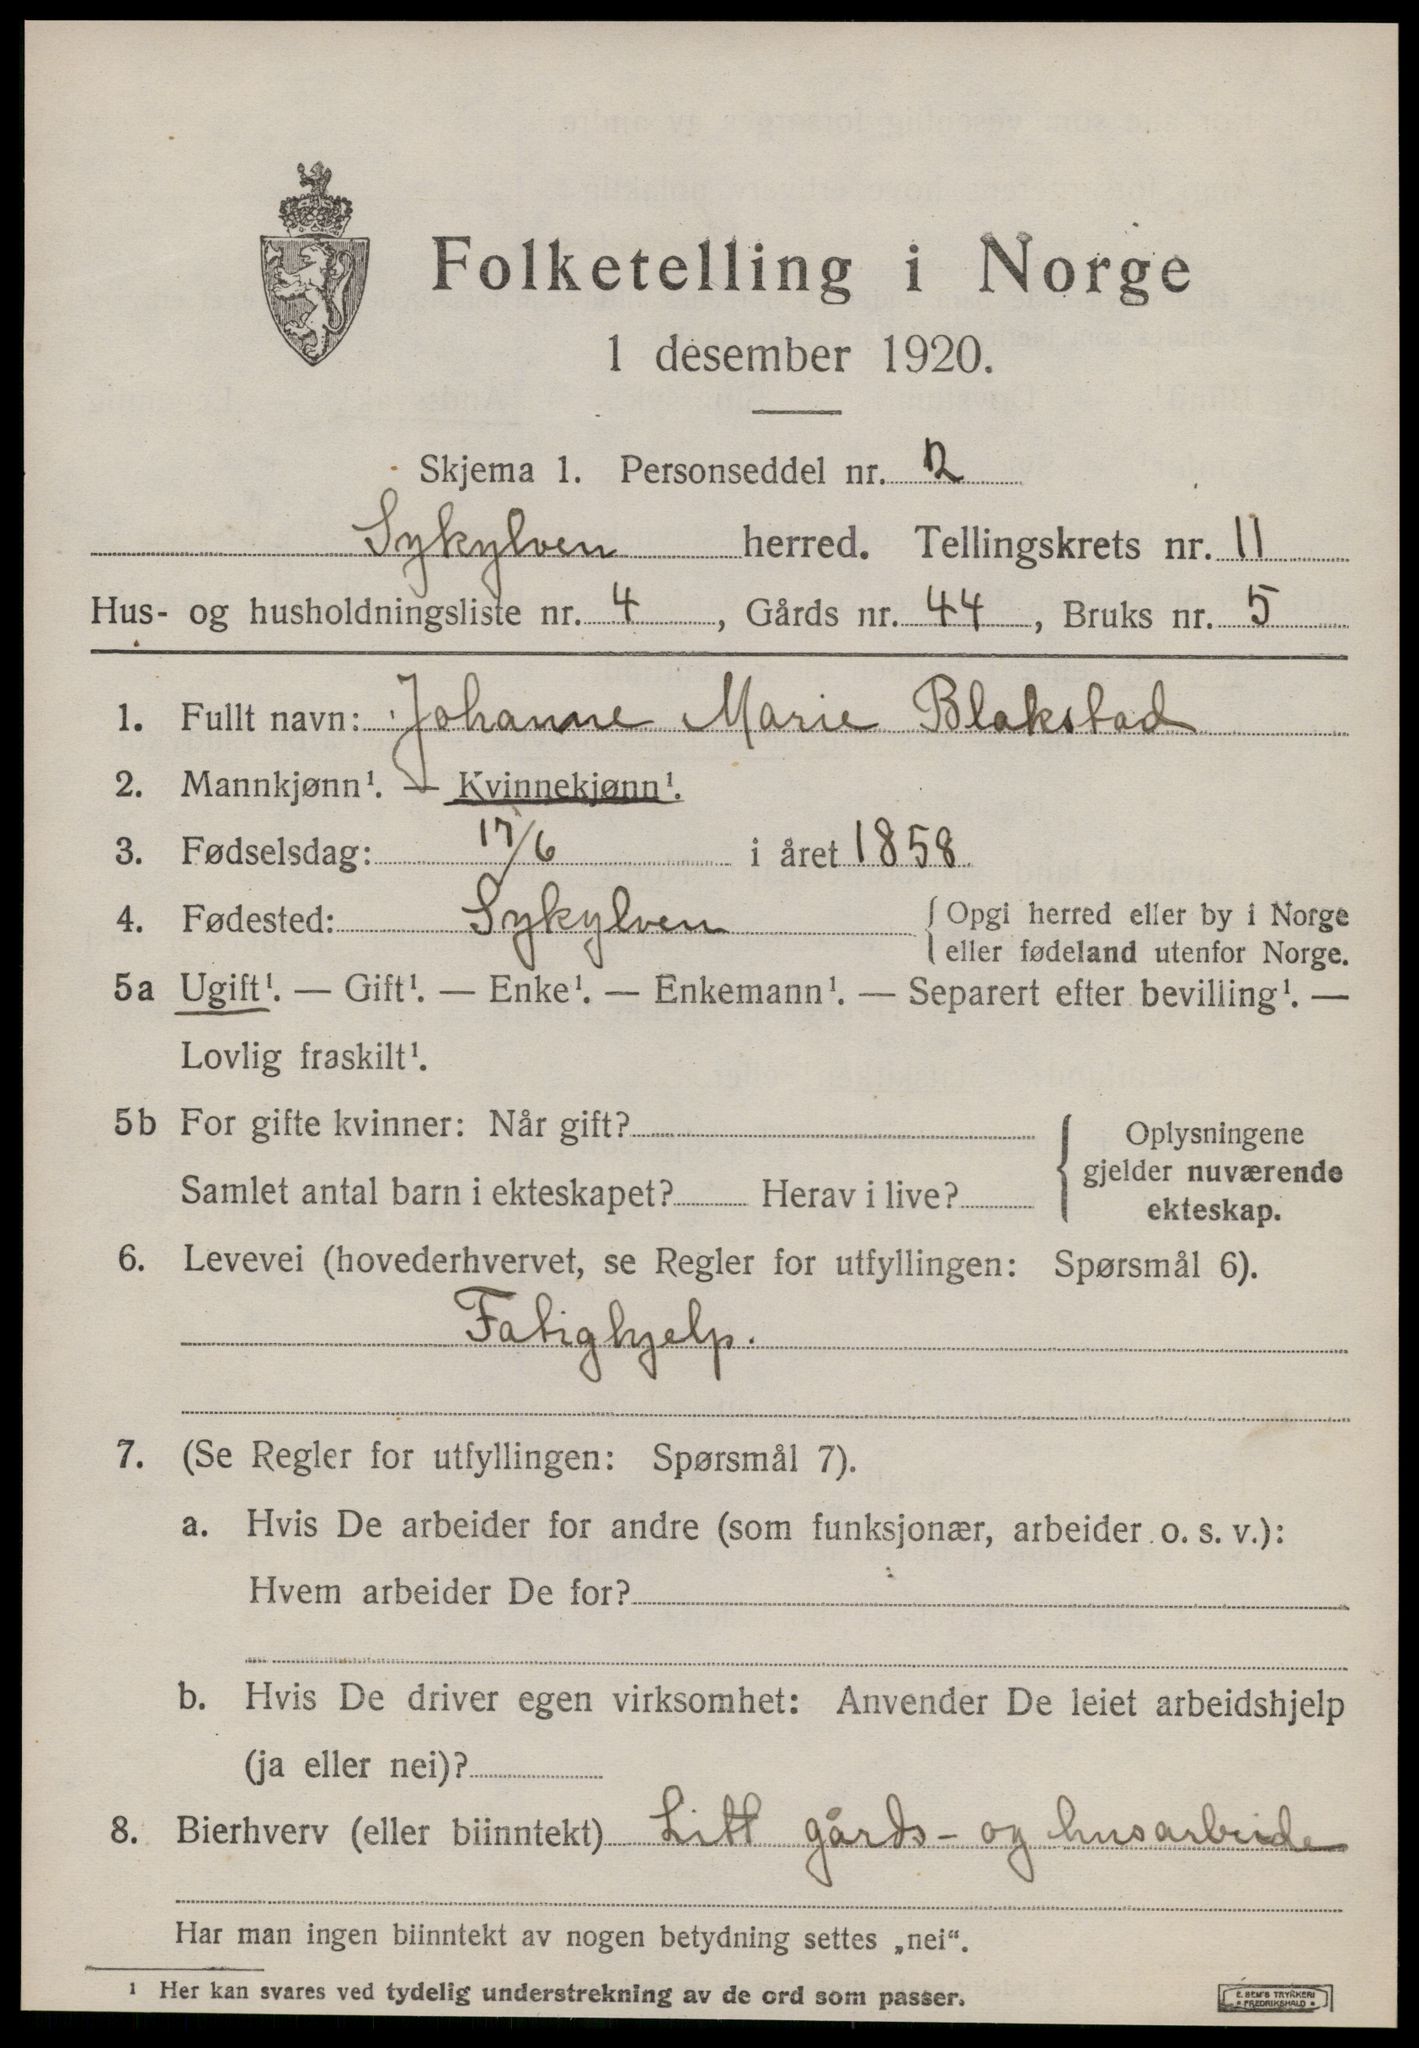 Folketelling i Norge
1 desember 1920.
Skjema 1. Personseddel nr. 2
Sykylven herred. Tellingskrets nr. 11
Hus- og husholdningsliste nr. 4, Gårds nr. 44, Bruks nr. 5
1. Fullt navn: Johanne Marie Blakstad
2. Mannkjønn¹. — Kvinnekjønn¹.
3. Fødselsdag: 17/6 i året 1858
4. Fødested: Sykylven { Opgi herred eller by i Norge
eller fødeland utenfor Norge.
5a Ugift¹. — Gift¹. — Enke¹. — Enkemann¹. — Separert efter bevilling¹. —
Lovlig fraskilt¹.
5b For gifte kvinner: Når gift? { Oplysningene
gjelder nuværende
ekteskap.
Samlet antal barn i ekteskapet? Herav i live?
6. Levevei (hovederhvervet, se Regler for utfyllingen: Spørsmål 6).
Fatighjelp.
7. (Se Regler for utfyllingen: Spørsmål 7).
a. Hvis De arbeider for andre (som funksjonær, arbeider o. s. v.):
Hvem arbeider De for?
b. Hvis De driver egen virksomhet: Anvender De leiet arbeidshjelp
(ja eller nei)?
8. Bierhverv (eller biinntekt) Litt gårds- og husarbeide
Har man ingen biinntekt av nogen betydning settes „nei“.
¹ Her kan svares ved tydelig understrekning av de ord som passer.
E. SEM'S TRYKKERI
FREDRIKSHALD